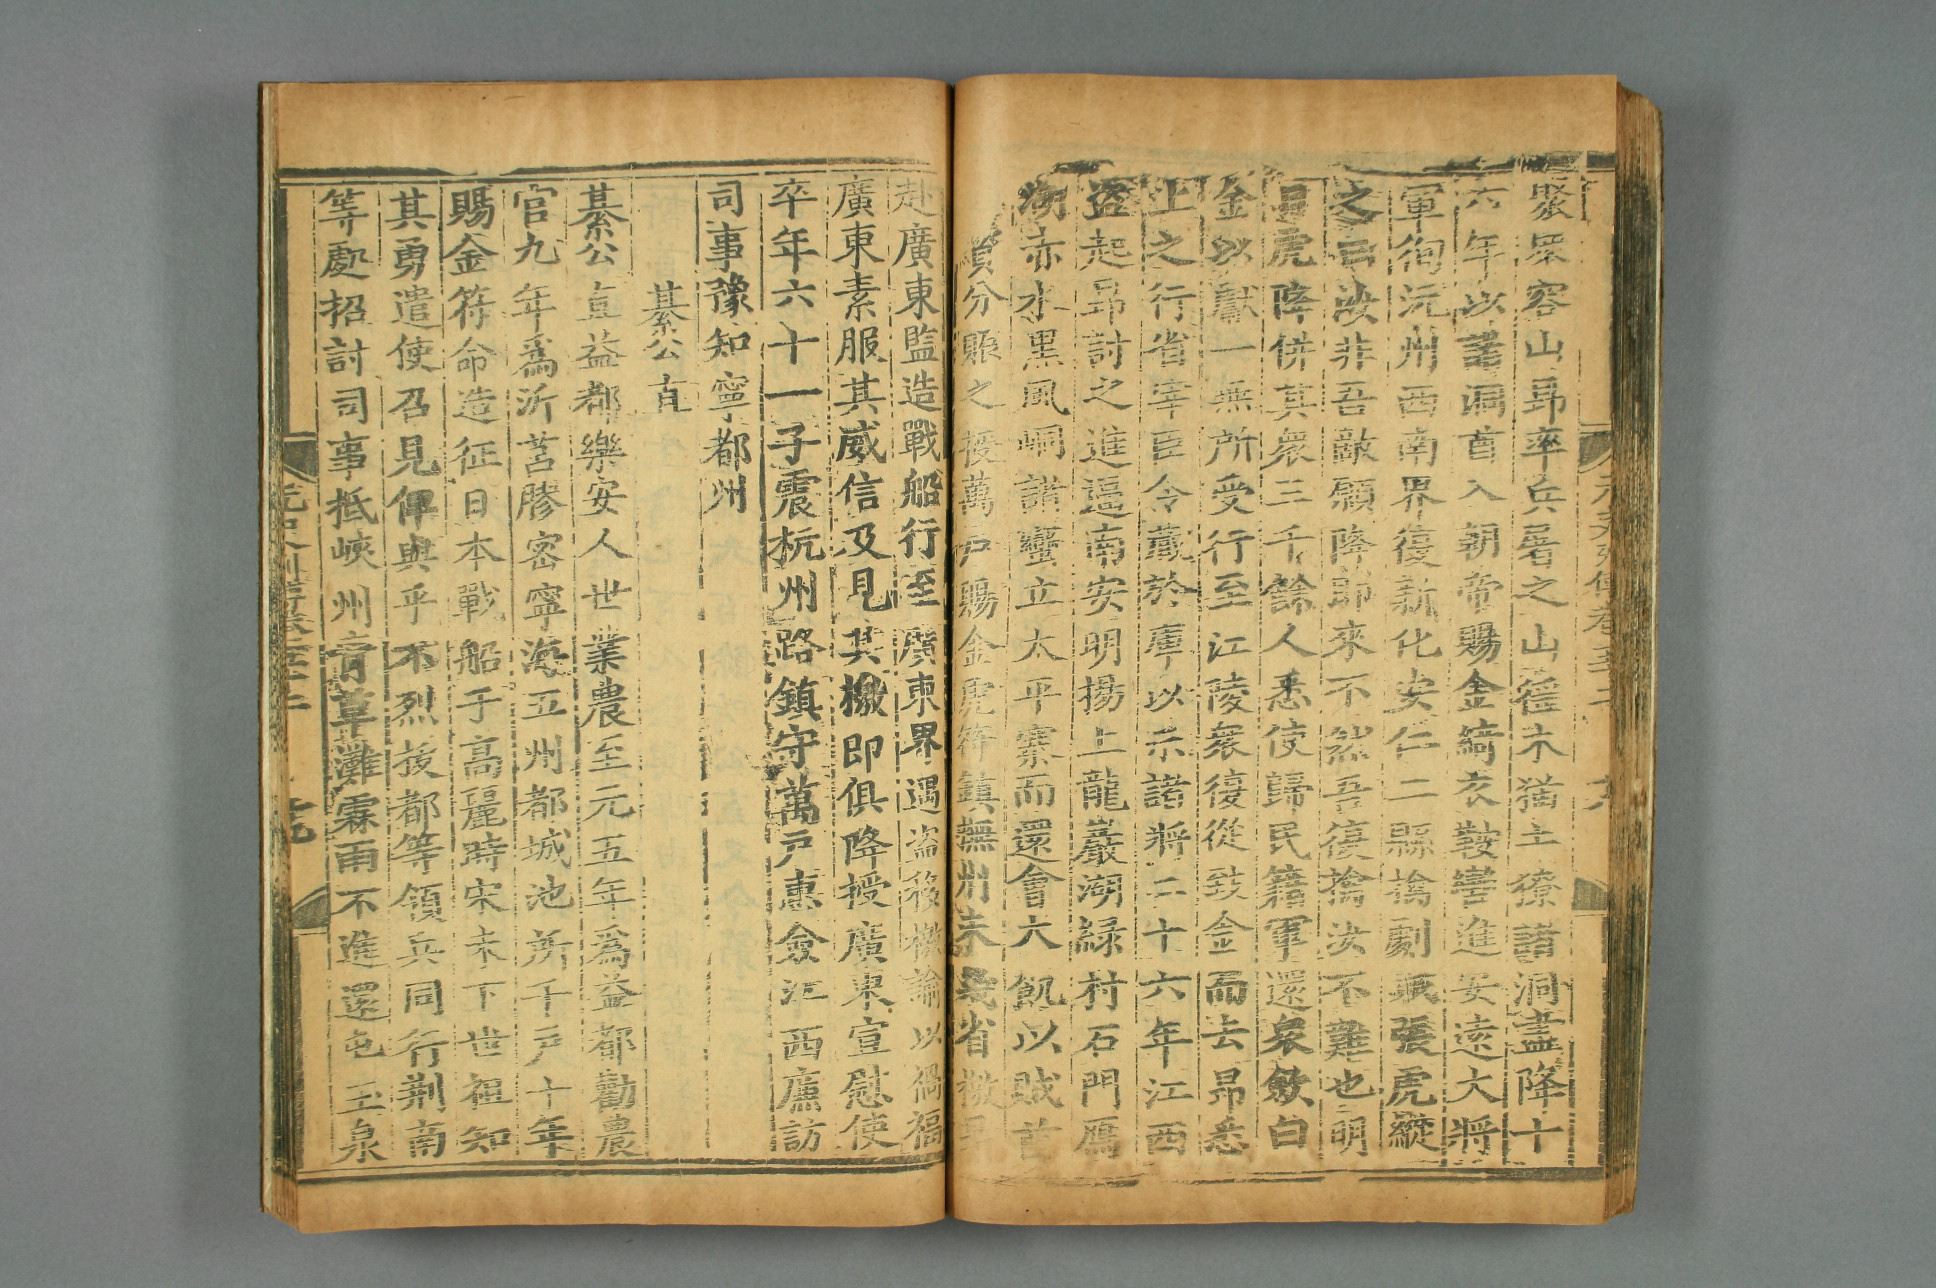 聚眾容山昂率兵署之山徭木猫土獠諸洞盡降十
六年以諸洞酋入朝帝賜金綺衣鞍轡進安遠大將
軍徇沅州西南界復新化安仁二縣擒劇賊張虎縱
之曰汝非吾敵願降即來不然吾復擒汝不難也明
日虎降併其眾三千餘人悉使歸民籍軍還眾斂白
金以獻一無所受行至江陵眾復從致金而去昂悉
上之行省宰臣令藏於庫以示諸將二十六年江西
盜起昂討之進逼南安明揚上龍巖湖綠村石門鴈
湖赤水黑風峒諸蠻立太平寨而還會大飢以賊首
貲分賑之授萬戶賜金虎符鎮撫州未幾省檄
赴廣東監造戰船行至廣東界遇盜移檄諭以禍福
廣東素服其威信及見其檄即俱降授廣東宣慰使
卒年六十一子震杭州路鎮守萬戶惠僉江西廉訪
司事豫知寧都州
綦公直
綦公直益都樂安人世業農至元五年爲益都勸農
官九年爲沂莒膠密寧海五州都城池所千戶十年
賜金符命造征日本戰船于高麗時宋未下世祖知
其勇遣使召見俾與乎不烈拔都等領兵同行荆南
等處招討司事抵峽州青草灘霖雨不進還屯玉泉